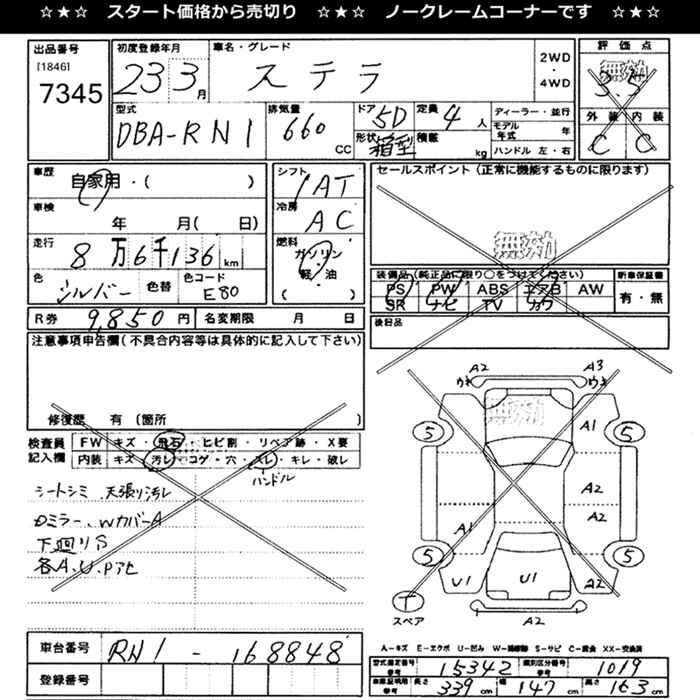 ☆★☆ スタート価格から売切り ☆★☆ ノークレームコーナーです ☆★☆
出品番号 初度登録年月 車名・グレード 2WD・4WD 評価点
[1846]
7345 23 3月 ステラ 無効 3.5
型式 排気量 ドア 5D 定員 4人 ディーラー・並行 外装 内装
DBA-RN1 660 CC 形状 箱型 積載 kg モデル年式 年 C C
ハンドル 左・右
車歴 自家用・( )
シフト IAT
セールスポイント(正常に機能するものに限ります)
車検 年 月( 日)
冷房 AC
無効
走行 8万6千136km
燃料 ガソリン 軽・油 ( )
色 シルバー 色替 色コード E80
装備品(純正品に限り○をつけてください) 新車保証書
PS PW ABS エアB AW 有・無
SR ナビ TV カワ
R券 9,850円 名変期限 月 日
後日品
注意事項申告欄(不具合内容等は具体的に記入して下さい)
修復歴 有(箇所 )
検査員記入欄 FW キズ・飛石・ヒビ割・リペア跡・X要
内装 キズ・汚レ・コゲ・穴・スレ・キレ・破レ
ハンドル
シートシミ、天張り汚レ
Dミラー、WカバーA
下廻りS
各A.U.Pアセ
A2 A3
ウキ ウキ
無効
5 A1 5
A2
A1 A2
5 5
U1 U1 A2
T
スペア A2
A-キズ E-エクボ U-凹み W-補修跡 S-サビ C-腐食 XX-交換済
車台番号 RN1-168848
登録番号
型式指定番号 参考 15342 類別区分番号 参考 1019
車庫証明用 参考 長さ 339cm 幅 147cm 高さ 163cm